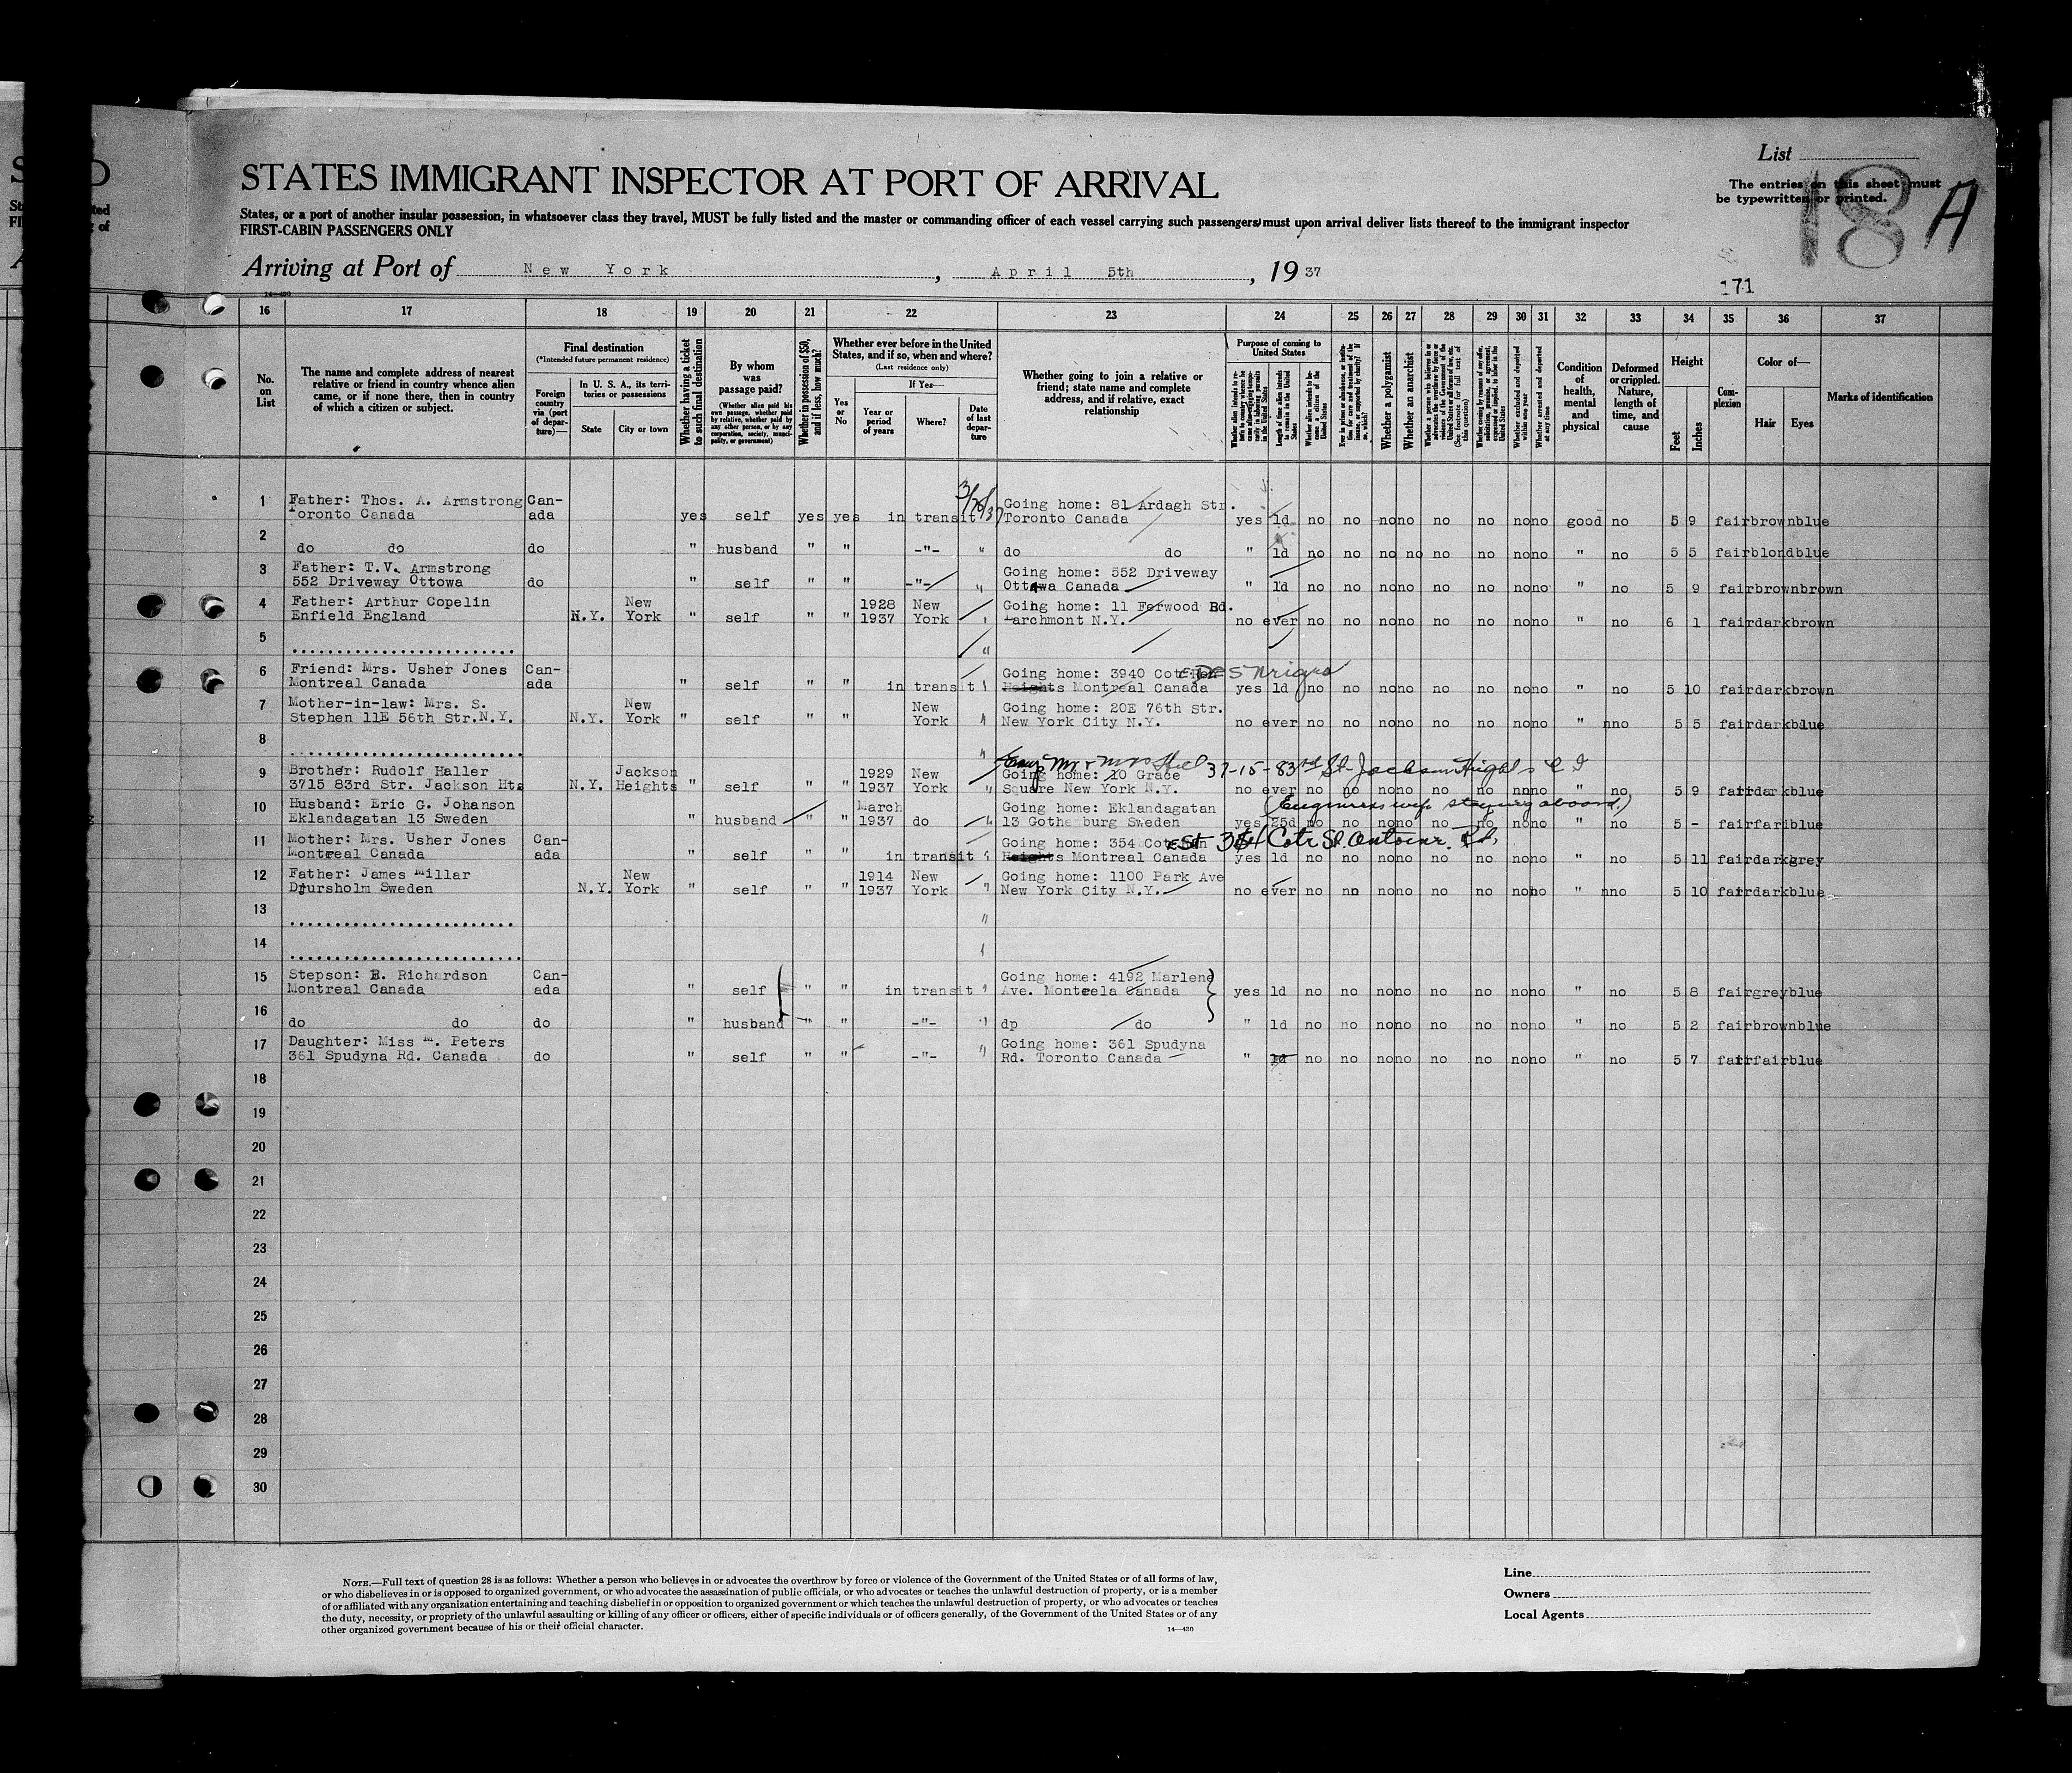 List
STATES IMMIGRANT INSPECTOR AT PORT OF ARRIVAL
The entries on this sheet must
be typewritten or printed.
18 A
States, or a port of another insular possession, in whatsoever class they travel, MUST be fully listed and the master or commanding officer of each vessel carrying such passengers must upon arrival deliver lists thereof to the immigrant inspector
FIRST-CABIN PASSENGERS ONLY
Arriving at Port of New York, April 5th, 1937
171
14—430
16 17 18 19 20 21 22 23 24 25 26 27 28 29 30 31 32 33 34 35 36 37
No. on List
The name and complete address of nearest relative or friend in country whence alien came, or if none there, then in country of which a citizen or subject.
Final destination
(*Intended future permanent residence)
Foreign country via (port of departure)—
In U. S. A., its territories or possessions
State
City or town
Whether having a ticket to such final destination
By whom was passage paid?
(Whether alien paid his own passage, whether paid by relative, whether paid by any other person, or by any corporation, society, municipality, or government)
Whether in possession of $50, and if less, how much?
Whether ever before in the United States, and if so, when and where?
(Last residence only)
Yes or No
If Yes—
Year or period of years
Where?
Date of last departure
Whether going to join a relative or friend; state name and complete address, and if relative, exact relationship
Purpose of coming to United States
Length of time alien intends to remain in the United States
Whether a polygamist
Whether an anarchist
(See footnote for full text of this question)
Whether arrested and deported at any time
Condition of health, mental and physical
Deformed or crippled. Nature, length of time, and cause
Height
Feet
Inches
Complexion
Color of—
Hair
Eyes
Marks of identification
1 Father: Thos. A. Armstrong Can- 3/26/37 Going home: 81 Ardagh Str.
Toronto Canada ada yes self yes yes in transit Toronto Canada yes 1d no no no no no no no no good no 5 9 fair brown blue
2 do do do " husband " " -"- " do do " 1d no no no no no no no no " no 5 5 fair blond blue
3 Father: T.V. Armstrong Going home: 552 Driveway
552 Driveway Ottowa do " self " " -"- " Ottawa Canada " 1d no no no no no no no no " no 5 9 fair brown brown
4 Father: Arthur Copelin New 1928 New Going home: 11 Ferwood Rd.
Enfield England N.Y. York " self " " 1937 York " Larchmont N.Y. no ever no no no no no no no no " no 6 1 fair dark brown
5 "
6 Friend: Mrs. Usher Jones Can- Going home: 3940 Cote
Montreal Canada ada " self " " in transit " Heights Montreal Canada yes 1d no no no no no no no no " no 5 10 fair dark brown
7 Mother-in-law: Mrs. S. New New Going home: 20E 76th Str.
Stephen 11E 56th Str.N.Y. N.Y. York " self " " York " New York City N.Y. no ever no no no no no no no no " nno 5 5 fair dark blue
8 "
Mr & Mrs 37-15-83rd St Jackson Heights L I
9 Brother: Rudolf Haller Jackson 1929 New Going home: 10 Grace
3715 83rd Str. Jackson Hts N.Y. Heights " self " " 1937 York " Square New York N.Y. no ever no no no no no no no no " no 5 9 fair dark blue
10 Husband: Eric G. Johanson March Going home: Eklandagatan (Engineers wife staying aboard.)
Eklandagatan 13 Sweden " husband " " 1937 do " 13 Gothenburg Sweden yes 25d no no no no no no no no " no 5 - fair fari blue
11 Mother: Mrs. Usher Jones Can- Going home: 354 Cote St. Antoine Rd.
Montreal Canada ada " self " " in transit " Heights Montreal Canada yes 1d no no no no no no no no " no 5 11 fair dark grey
12 Father: James Millar New 1914 New Going home: 1100 Park Ave
Djursholm Sweden N.Y. York " self " " 1937 York " New York City N.Y. no ever no no no no no no no no " nno 5 10 fair dark blue
13 "
14
15 Stepson: E. Richardson Can- Going home: 4192 Marlene
Montreal Canada ada " self " " in transit " Ave. Montreela Canada yes 1d no no no no no no no no " no 5 8 fair grey blue
16 do do do " husband " " -"- " dp do " 1d no no no no no no no no " no 5 2 fair brown blue
17 Daughter: Miss M. Peters Going home: 361 Spudyna
361 Spudyna Rd. Canada do " self " " -"- " Rd. Toronto Canada " 1d no no no no no no no no " no 5 7 fair fair blue
18
19
20
21
22
23
24
25
26
27
28
29
30
NOTE.—Full text of question 28 is as follows: Whether a person who believes in or advocates the overthrow by force or violence of the Government of the United States or of all forms of law,
or who disbelieves in or is opposed to organized government, or who advocates the assassination of public officials, or who advocates or teaches the unlawful destruction of property, or is a member
of or affiliated with any organization entertaining and teaching disbelief in or opposition to organized government or which teaches the unlawful destruction of property, or who advocates or teaches
the duty, necessity, or propriety of the unlawful assaulting or killing of any officer or officers, either of specific individuals or of officers generally, of the Government of the United States or of any
other organized government because of his or their official character.
14—430
Line
Owners
Local Agents